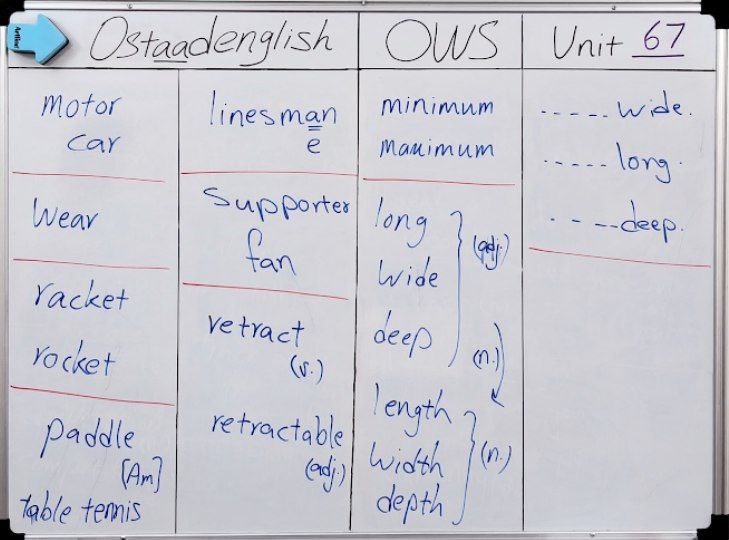 Ostaadenglish
OWS
Unit 67
motor
car
Wear
racket
rocket
paddle
[Am]
table tennis
linesman
e
Supporter
fan
retract
(v.)
retractable
(adj.)
minimum
mauimum
long
wide
deep
(adj.)
(n.)
length
width
depth
(n.)
----- wide.
----- long.
- - -- deep.